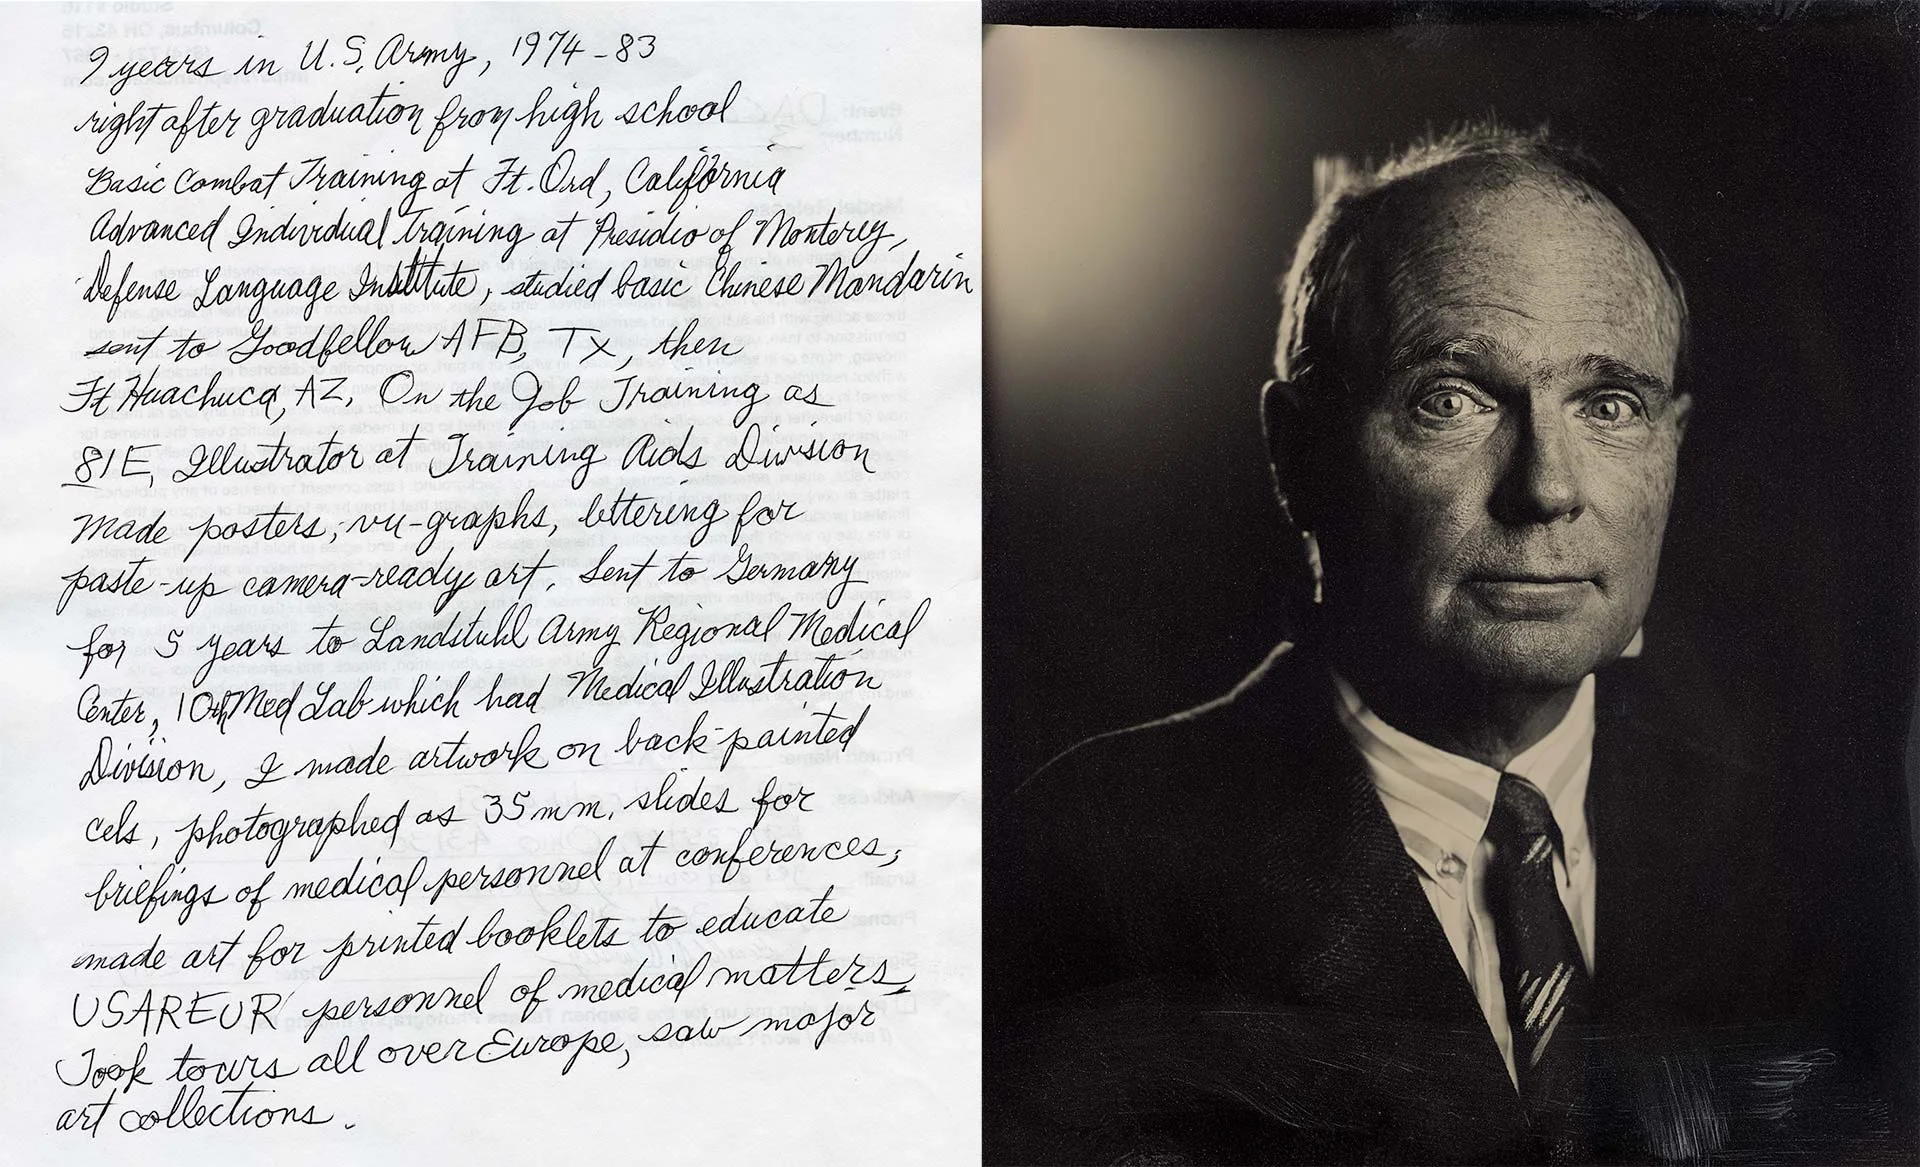 9 years in U.S. Army, 1974-83
right after graduation from high school
Basic Combat Training at Ft. Ord, California
Advanced Individual training at Presidio of Monterey,
Defense Language Institute, studied basic Chinese Mandarin
sent to Goodfellow AFB, Tx, then
Ft Huachuca, AZ, On the Job Training as
81E, Illustrator at Training Aids Division
Made posters, vu-graphs, lettering for
paste-up camera-ready art. Sent to Germany
for 5 years to Landstuhl Army Regional Medical
Center, 10th Med Lab which had Medical Illustration
Division, I made artwork on back-painted
cels, photographed as 35mm. slides for
briefings of medical personnel at conferences,
made art for printed booklets to educate
USAREUR personnel of medical matters,
Took tours all over Europe, saw major
art collections.